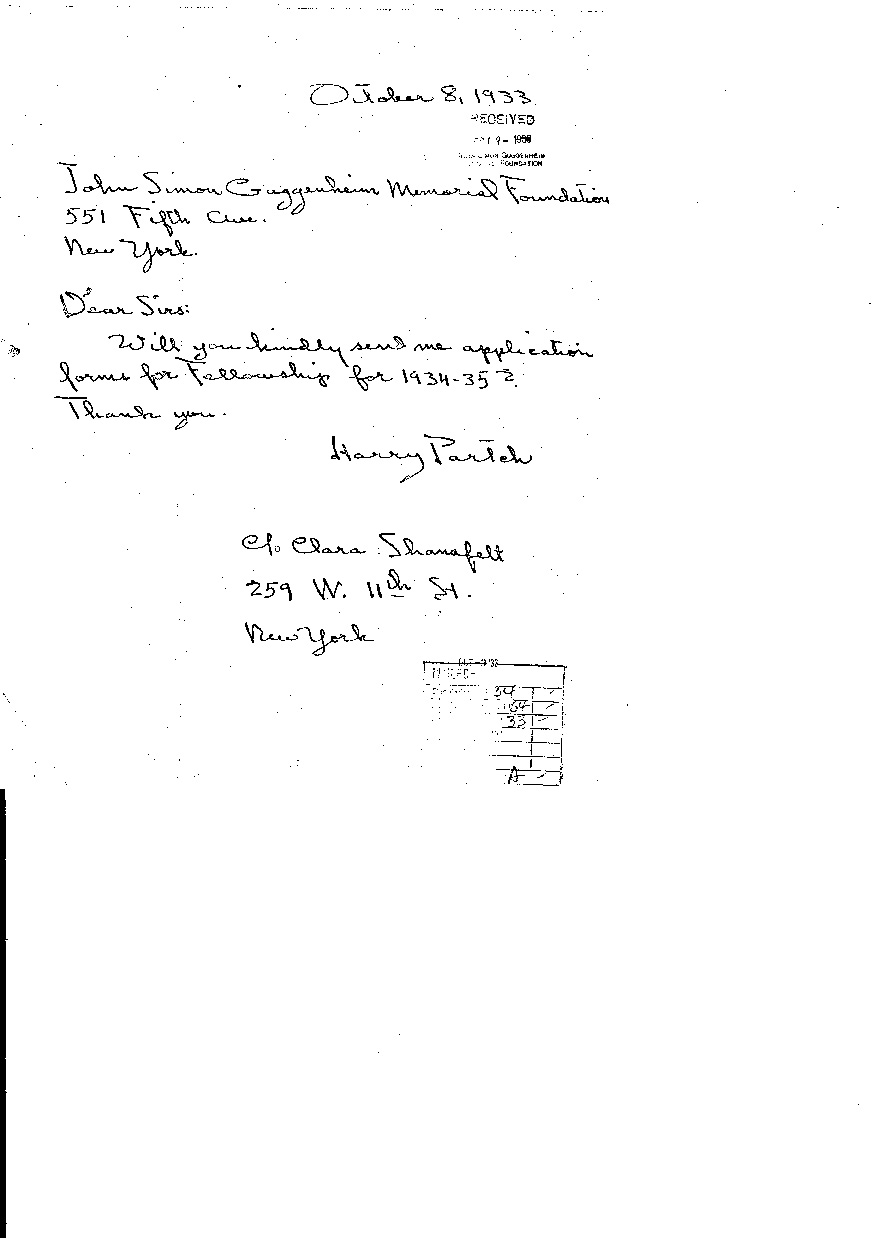 October 8, 1933
RECEIVED
John Simon Guggenheim Memorial Foundation
551 Fifth Ave.
New York.
Dear Sirs:
Will you kindly send me application
forms for Fellowship for 1934-35?
Thank you.
Harry Partch
c/o Clara Shanafelt
259 W. 11th St.
New York
34
164
33
A